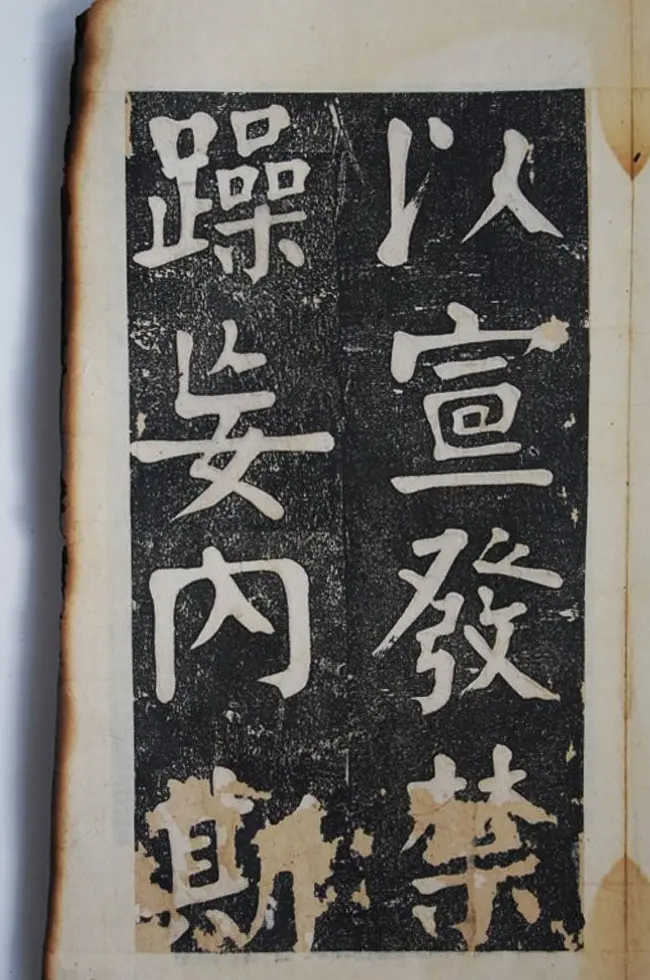 以宣發禁
躁妄內斯